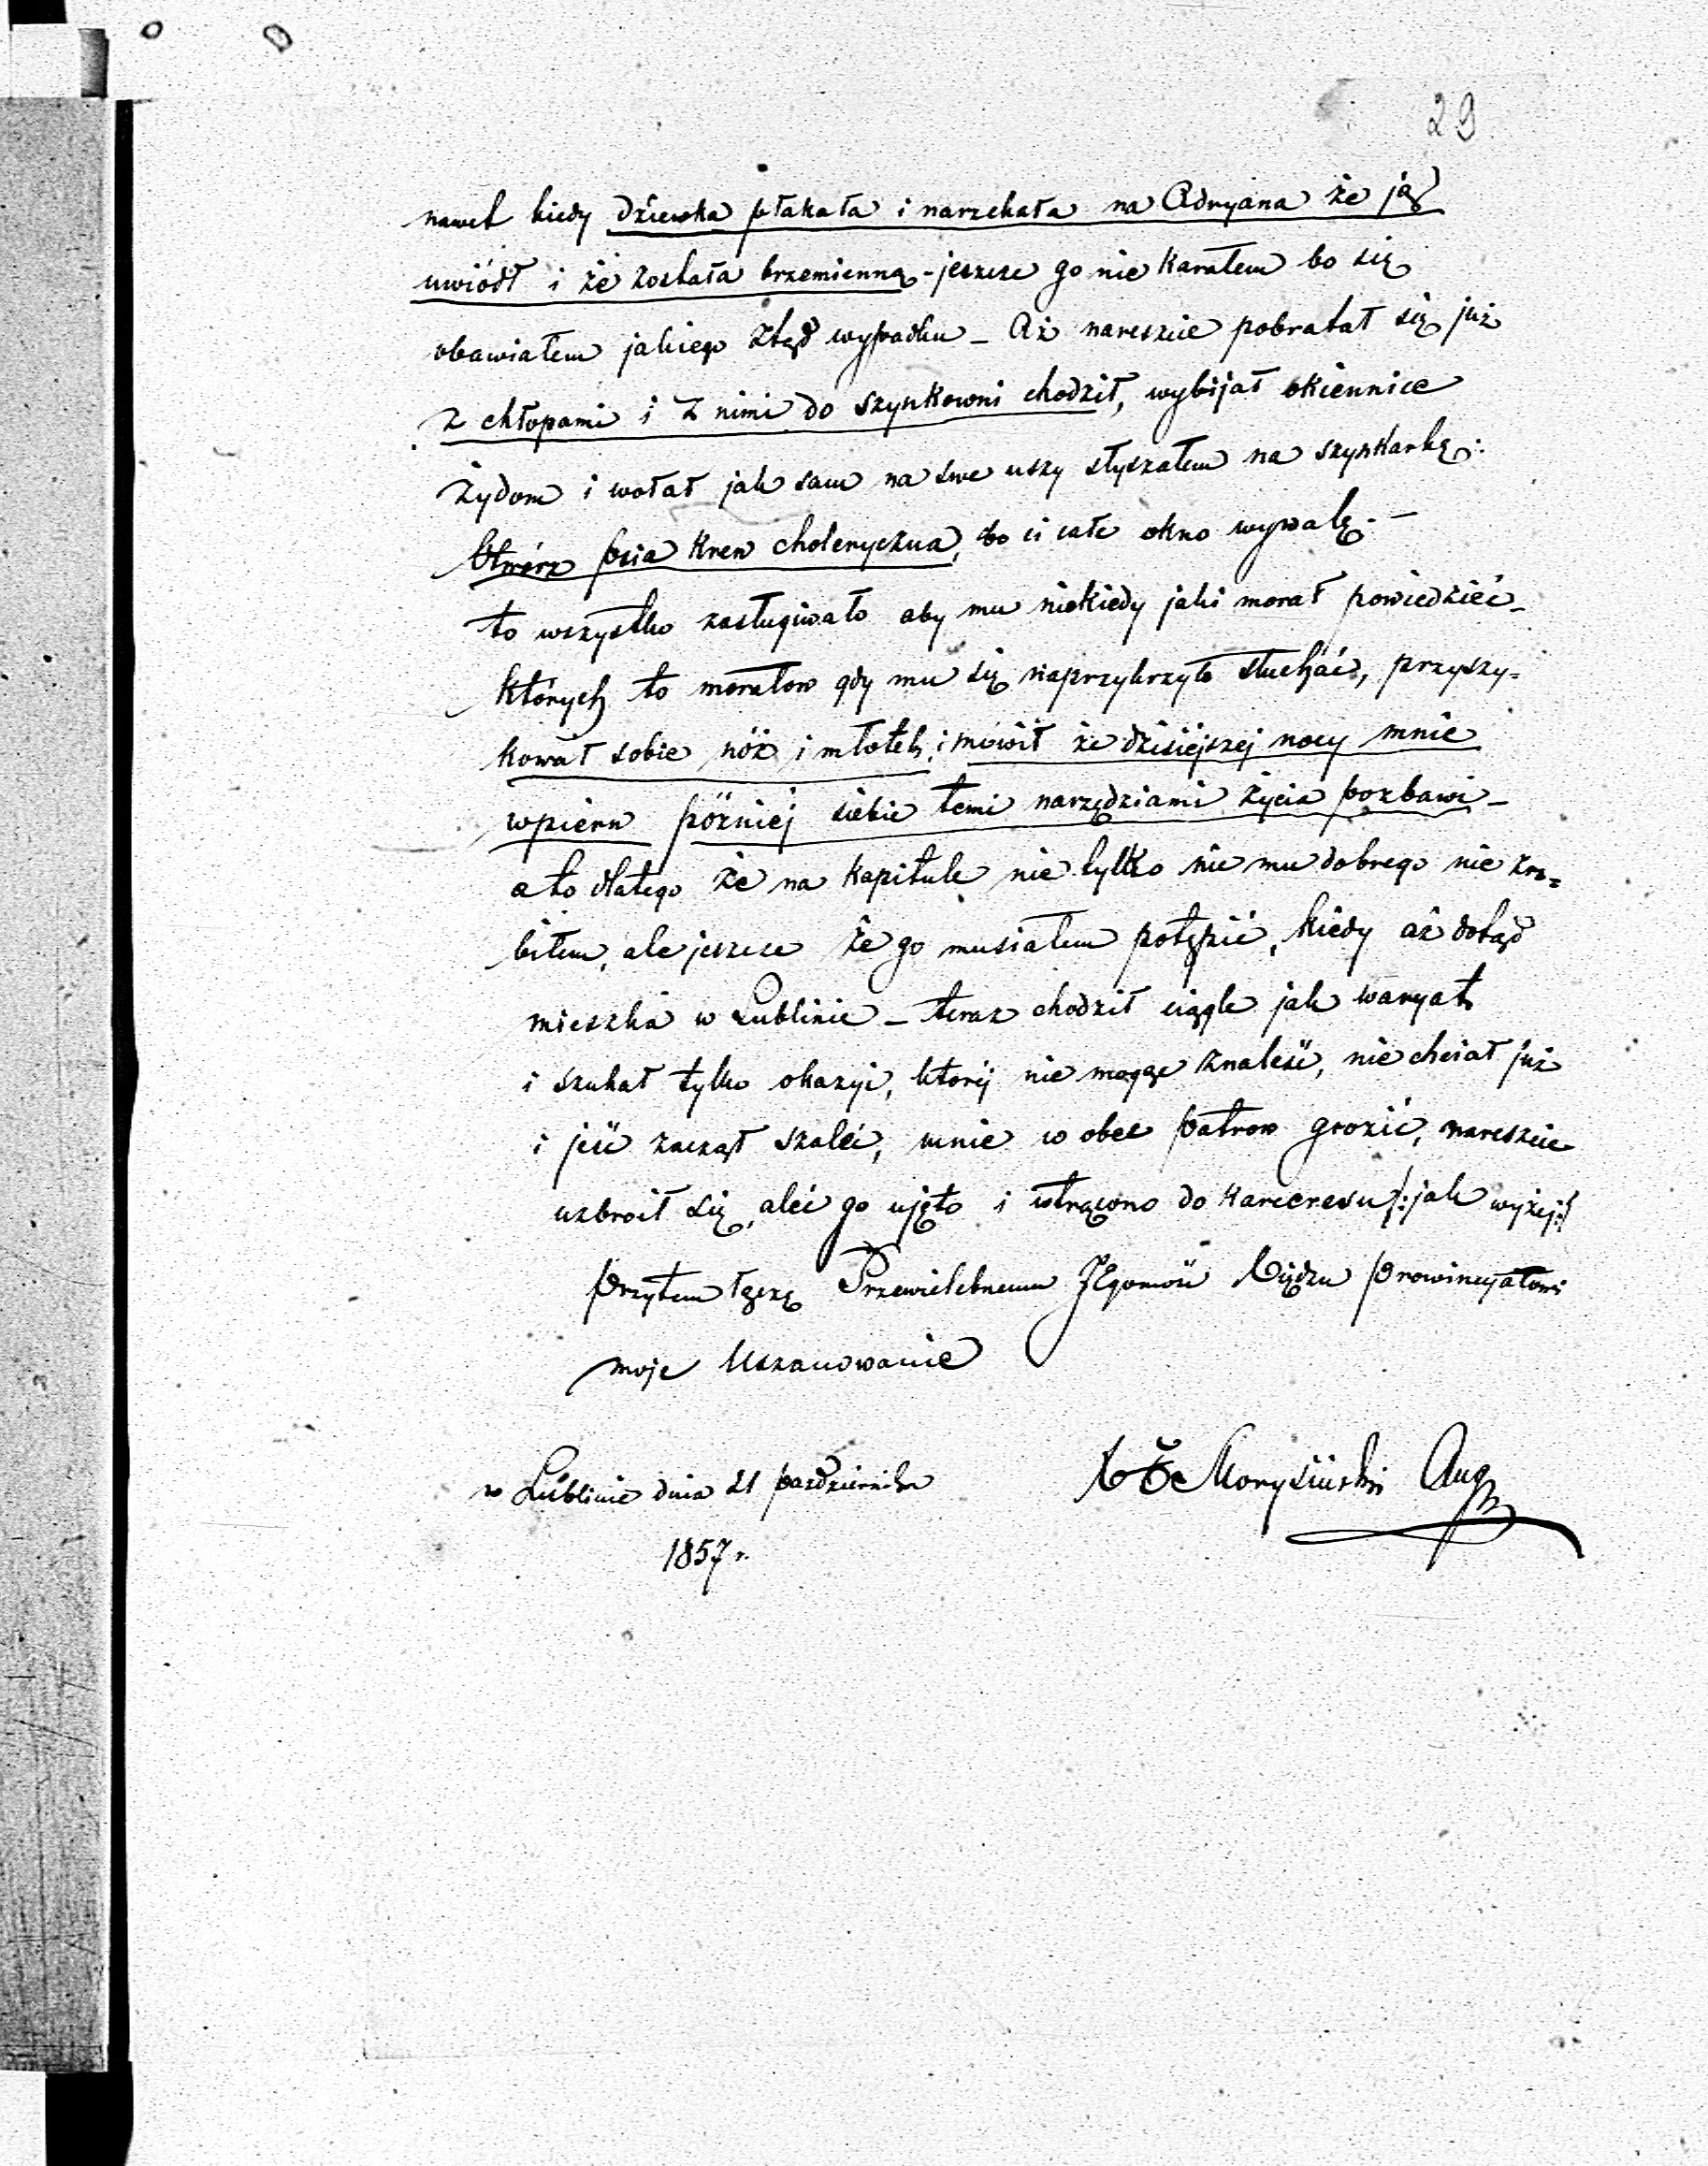 29
nawet kiedy dziewka płakała i narzekała na Adryana że ją
uwiódł i że została brzemienną - jeszcze go nie karałem bo się
obawiałem jakiego ztąd wypadku - Aż nareszcie pobratał się już
z chłopami i z nimi do szynkowni chodził, wybijał okiennice
Żydom i wołał jak sam na swe uszy słyszałem na szynkarkę:
Otwórz psia krew choleryczna, bo ci całe okno wywalę. -
to wszystko zasługiwało aby mu niekiedy jaki morał powiedzieć -
których to morałow gdy mu się naprzykrzyło słuchać, przyszy=
kował sobie nóż i młotek, i mówił że dzisiejszej nocy mnie
wpierw później siebie temi narzędziami życia pozbawi -
a to dlatego że na kapitule nie tylko nic mu dobrego nie zro=
biłem, ale jeszcze że go musiałem potępić, kiedy aż dotąd
mieszka w Lublinie - teraz chodził ciągle jak waryat
i szukał tylko okazyi, której nie mogąc znaleść, nie chciał już
i jeść zaczął szaleć, mnie w obec patrow grozić, nareszcie
uzbroił się, aleć go ujęto i wtrącono do karceresu /: jak wyżej :/
Przytem łączę Przewielebnemu JEgomość Księdzu Prowincyałowi
moje Uszanowanie
w Lublinie dnia 21 października
1857 r.
Morysiński Aug